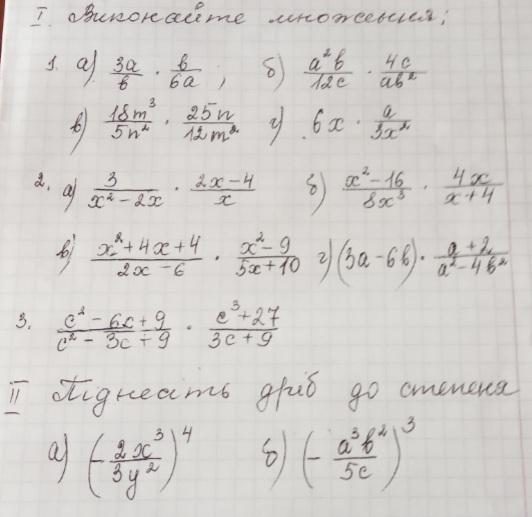 I. Виконайте множення;
1. а) 3a/в · в/6a ; б) a²b/12c · 4c/ab²
в) 18m³/5n² · 25n/12m² г) 6x · a/3x²
2. а) 3/x²-2x · 2x-4/x б) x²-16/8x³ · 4x/x+4
в) x²+4x+4/2x-6 · x²-9/5x+10 г) (3a-6b) · a+2/a²-4b²
3. c²-6c+9/c²-3c+9 · c³+27/3c+9
II Піднесіть дріб до степеня
а) (-2x³/3y²)⁴ б) (-a³b²/5c)³